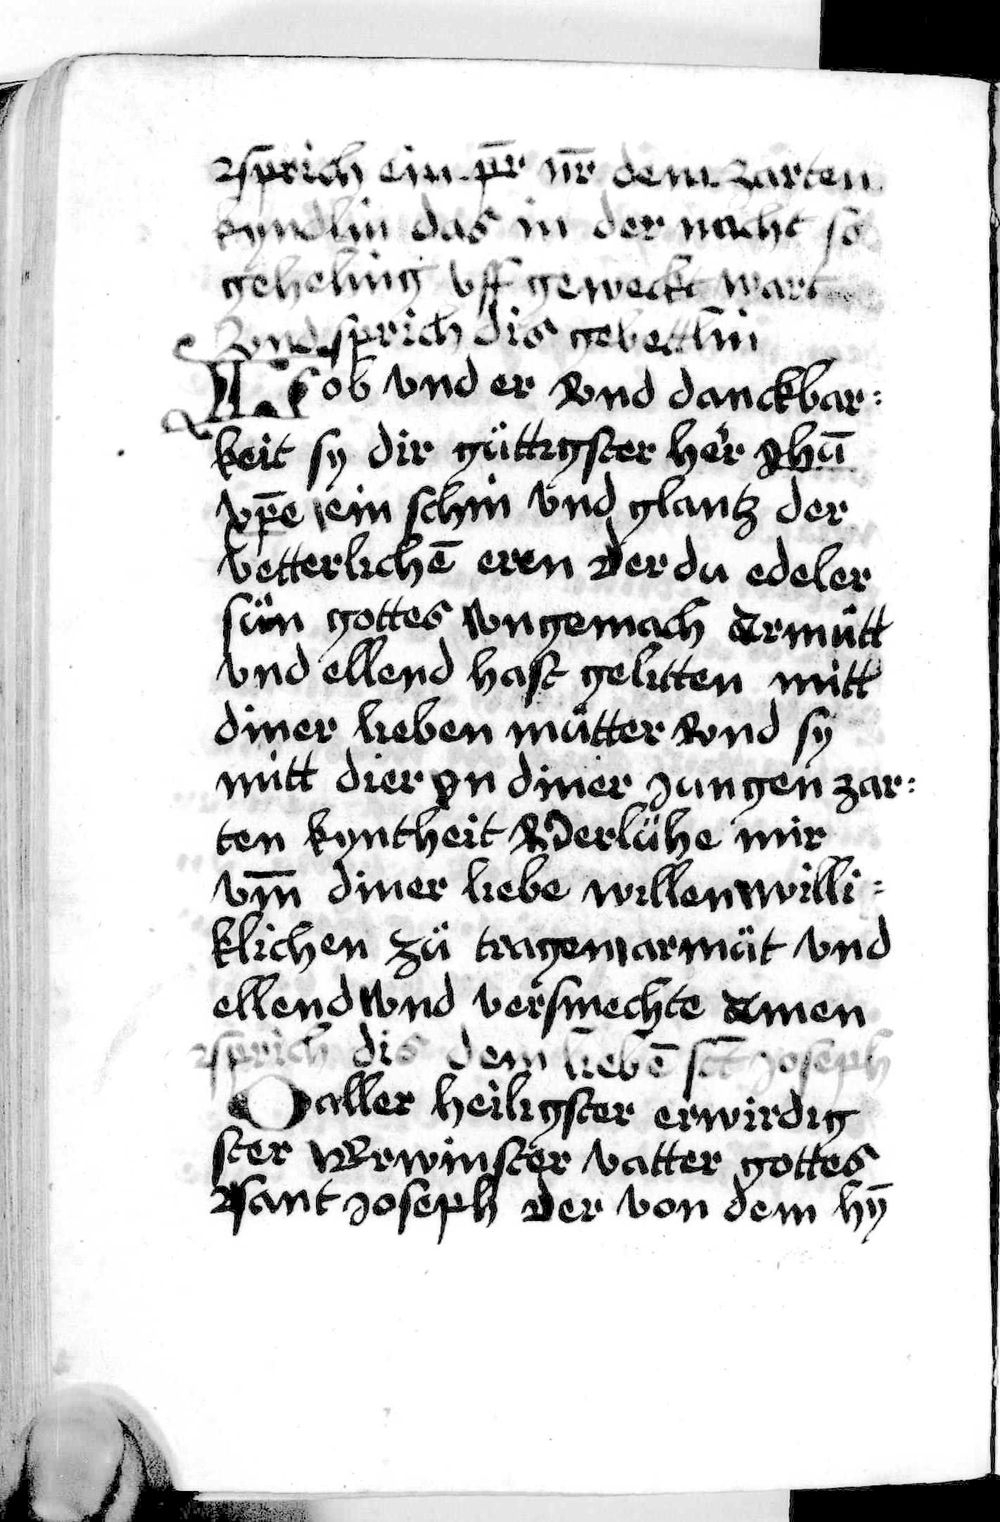 Sprich ein pr̄ nr̄ dem zarten
kyndlin das in der nacht so
geheling vff geweckt wart
Vnd sprich dis gebettlin
Lob vnd er Vnd danckbar:
keit sy dir güttigster her Jhū
xp̄e ein schin vnd glantz der
vetterlichē eren Der du edeler
sün gottes Vngemach Armütt
vnd ellend hast gelitten mitt
diner lieben mütter Vnd sy
mitt dier Jn diner jungen zar:
ten kyntheit Verlühe mir
vm̄ diner liebe willen willi:
klichen zü tragen armüt vnd
ellend Vnd versmechte Amen
Sprich dis dem liebē sct̄ joseph
O aller heiligster erwirdig
ster Erwinster vatter gottes
Sant joseph Der von dem hȳ